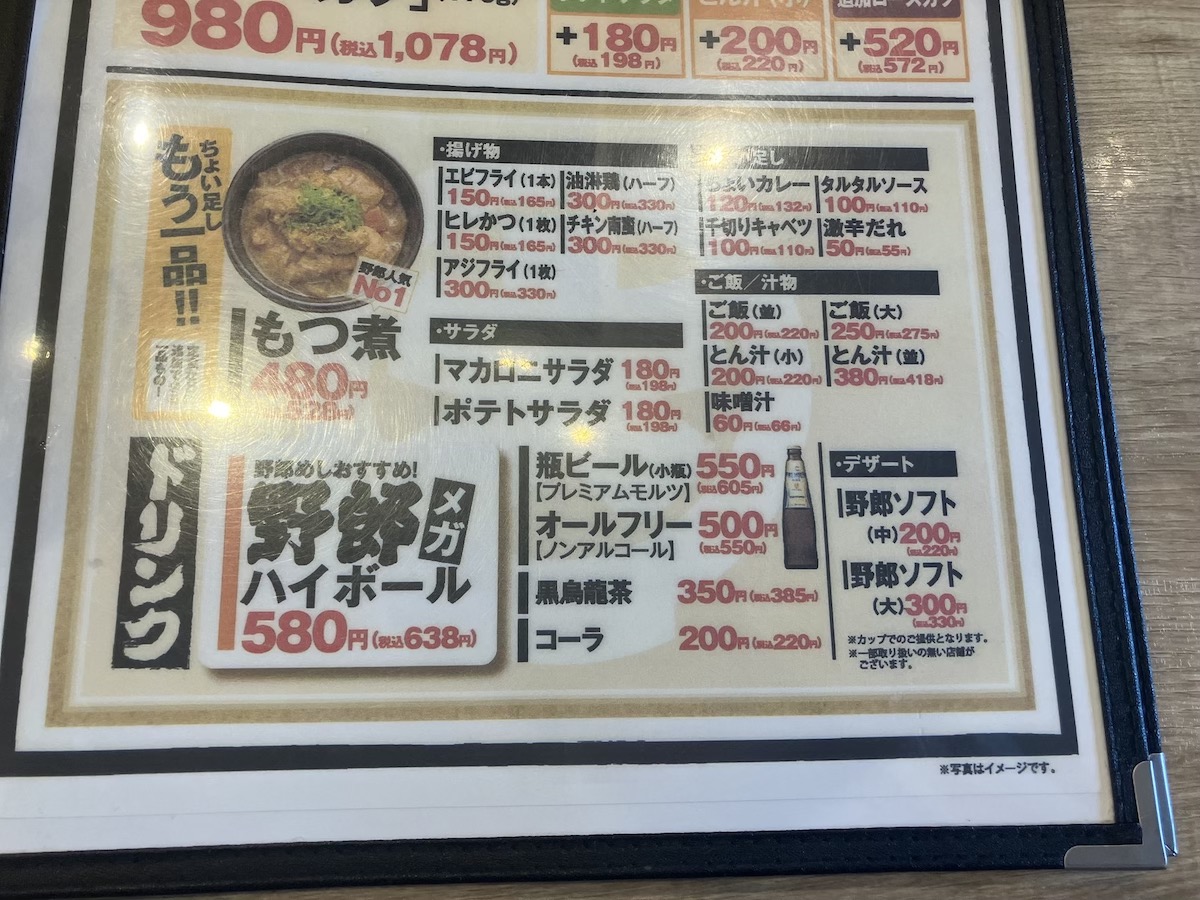 980円(税込1,078円)
+180円
(税込198円)
+200円
(税込220円)
追加ロースカツ
+520円
(税込572円)
ちょい足し
もう一品!!
野郎人気
No1
もつ煮
480円
・揚げ物
エビフライ(1本)
150円(税込165円)
油淋鶏(ハーフ)
300円(税込330円)
ヒレかつ(1枚)
150円(税込165円)
チキン南蛮(ハーフ)
300円(税込330円)
アジフライ(1枚)
300円(税込330円)
・サラダ
マカロニサラダ 180円
(税込198円)
ポテトサラダ 180円
(税込198円)
足し
ちょいカレー
120円(税込132円)
タルタルソース
100円(税込110円)
千切りキャベツ
100円(税込110円)
激辛だれ
50円(税込55円)
・ご飯/汁物
ご飯(並)
200円(税込220円)
ご飯(大)
250円(税込275円)
とん汁(小)
200円(税込220円)
とん汁(並)
380円(税込418円)
味噌汁
60円(税込66円)
ドリンク
野郎めしおすすめ!
野郎メガ
ハイボール
580円(税込638円)
瓶ビール(小瓶) 550円
【プレミアムモルツ】 (税込605円)
オールフリー 500円
【ノンアルコール】 (税込550円)
黒烏龍茶 350円(税込385円)
コーラ 200円(税込220円)
・デザート
野郎ソフト
(中)200円
(税込220円)
野郎ソフト
(大)300円
(税込330円)
※カップでのご提供となります。
※一部取り扱いの無い店舗が
ございます。
※写真はイメージです。